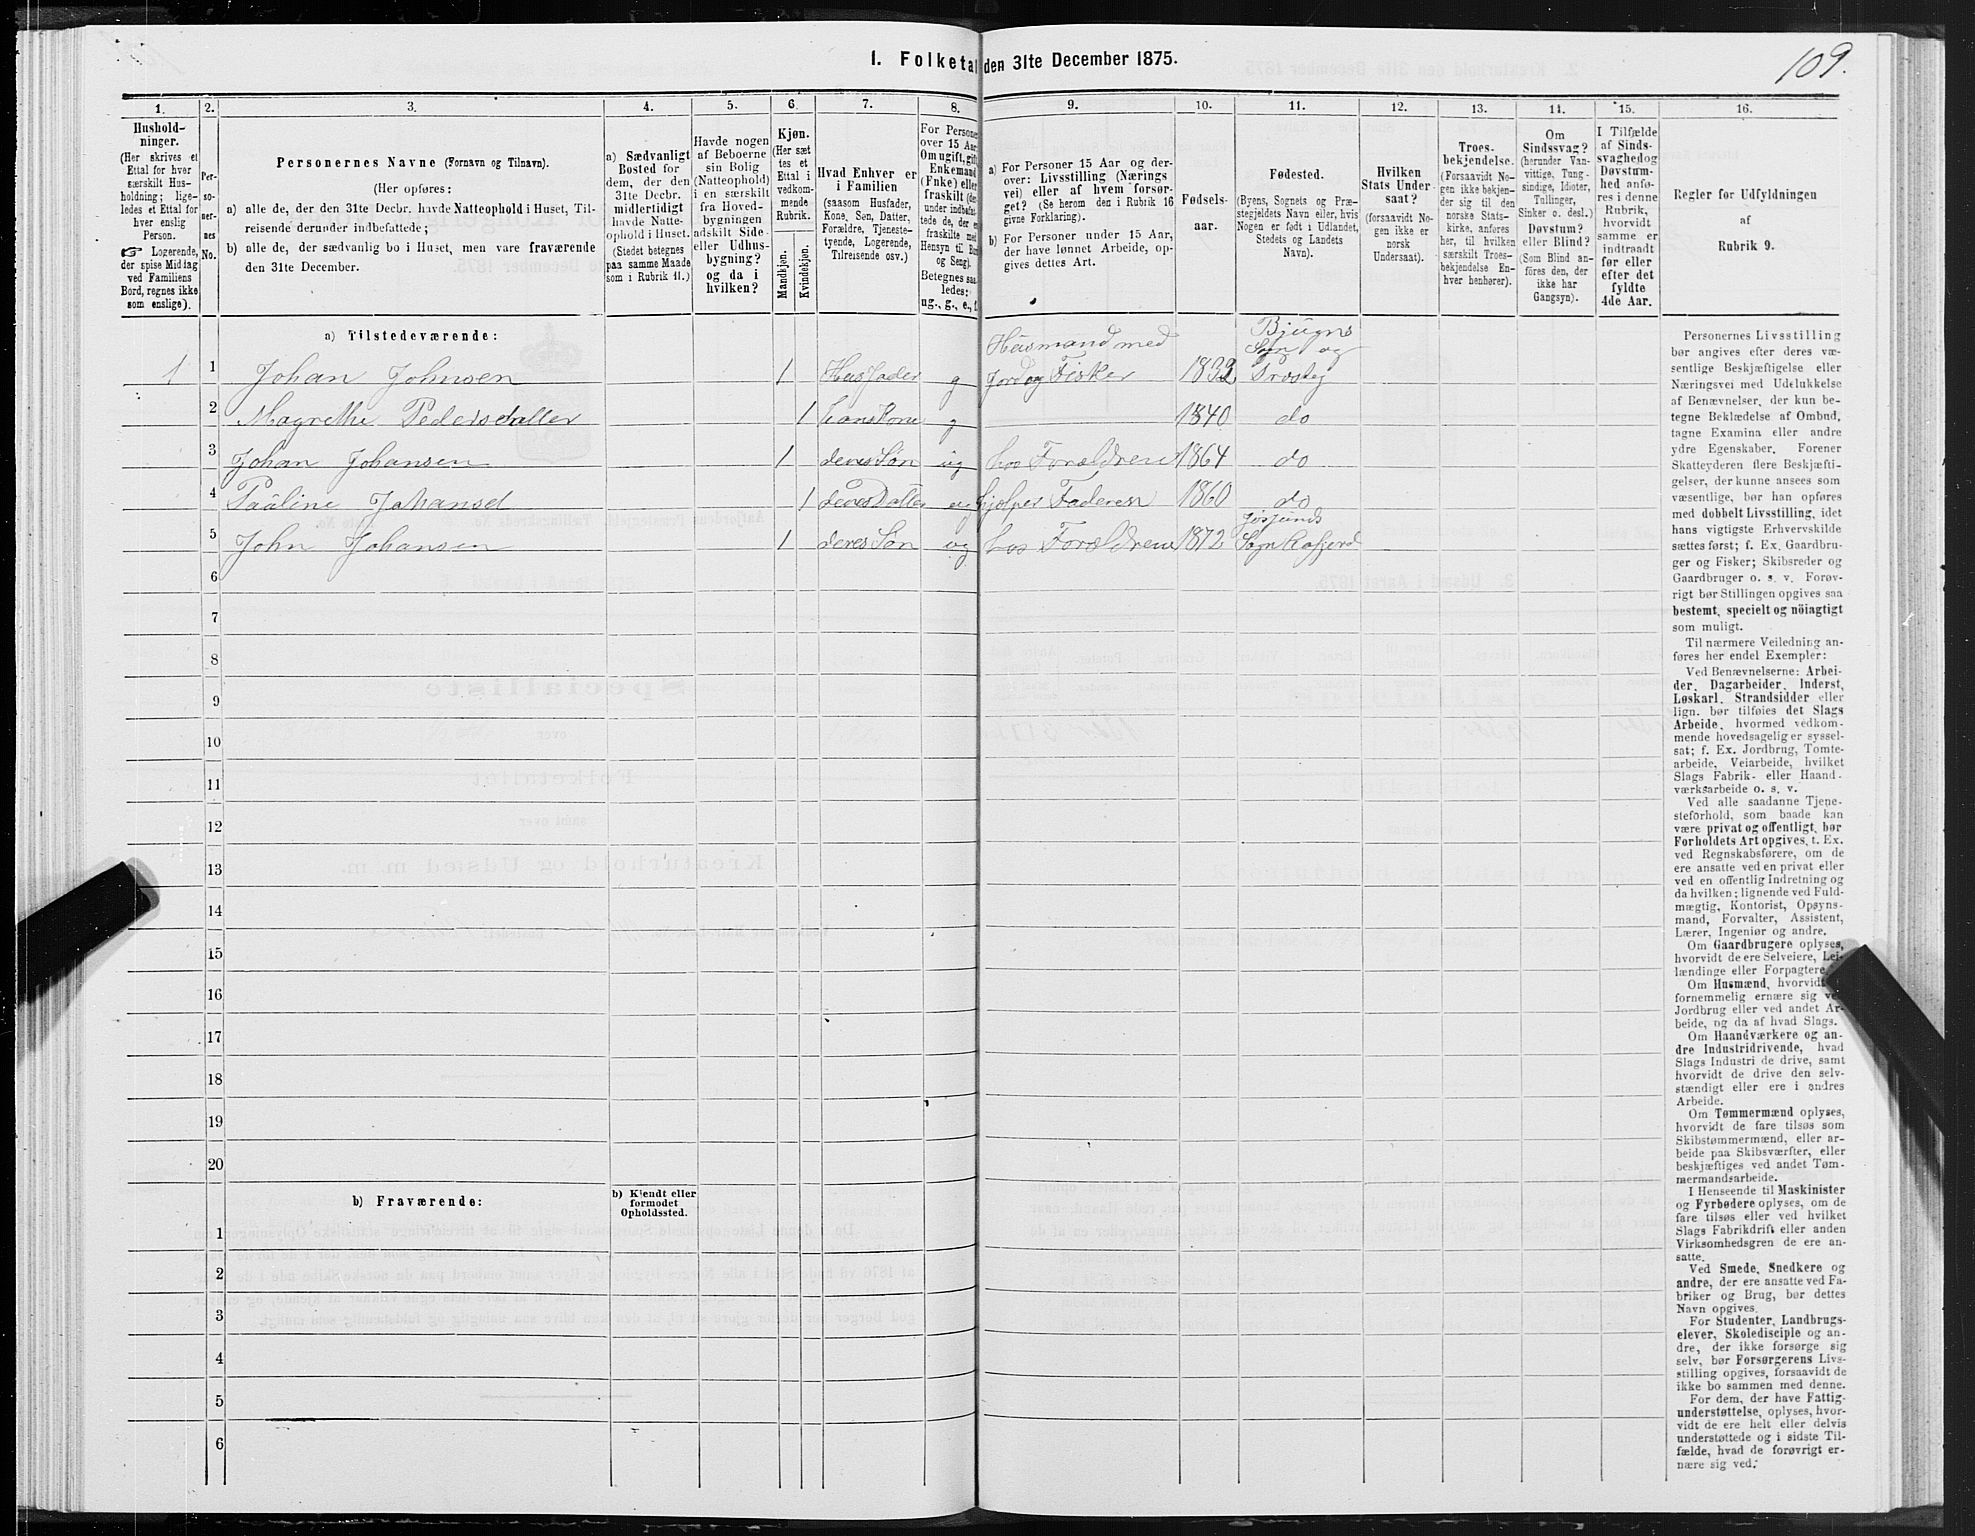 109.
1. Folketal den 31te December 1875.
1. 2. 3. 4. 5. 6. 7. 8. 9. 10. 11. 12. 13. 14. 15. 16.
Hushold-
ninger.
(Her skrives et
Ettal for hver
særskilt Hus-
holdning; lige-
ledes et Ettal for
hver enslig
Person.
☞ Logerende,
der spise Middag
ved Familiens
Bord, regnes ikke
som enslige).
Per-
so-
ner-
nes
No.
Personernes Navne (Fornavn og Tilnavn).
(Her opføres:
a) alle de, der den 31te Decbr. havde Natteophold i Huset, Til-
reisende derunder indbefattede;
b) alle de, der sædvanlig bo i Huset, men vare fraværende
den 31te December.
a) Sædvanligt
Bosted for
dem, der den
31te Decbr.
midlertidigt
havde Natte-
ophold i Huset.
(Stedet betegnes
paa samme Maade
som i Rubrik 11.)
Havde nogen
af Beboerne
sin Bolig
(Natteophold)
i en særskilt
fra Hoved-
bygningen
adskilt Side-
eller Udhus-
bygning?
og da i
hvilken?
Kjøn.
(Her sæt
tes et
Ettal i
vedkom-
mende
Rubrik.
Mandkjøn.
Kvindekjøn.
Hvad Enhver er
i Familien
(saasom Husfader,
Kone, Søn, Datter,
Forældre, Tjeneste-
tyende, Logerende,
Tilreisende osv.)
For Personer
over 15 Aar:
Om ugift, gift,
Enkemand
(Enke) eller
fraskilt (der-
under indbefat-
tede de, der ere
fraskilte med
Hensyn til Bord
og Seng).
Betegnes saa-
ledes:
ug., g., e., f.
a) For Personer 15 Aar og der-
over: Livsstilling (Nærings
vei) eller af hvem forsør-
get? (Se herom den i Rubrik 16
givne Forklaring).
b) For Personer under 15 Aar,
der have lønnet Arbeide, op-
gives dettes Art.
Fødsels-
aar.
Fødested.
(Byens, Sognets og Præ-
stegjeldets Navn eller, hvis
Nogen er født i Udlandet,
Stedets og Landets
Navn).
Hvilken
Stats Under-
saat?
(forsaavidt No-
gen ikke er
norsk
Undersaat).
Troes-
bekjendelse.
(Forsaavidt No-
gen ikke bekjen-
der sig til den
norske Stats-
kirke, anføres
her, til hvilken
særskilt Troes-
bekjendelse En-
hver henhører).
Om
Sindssvag?
(herunder Van-
vittige, Tung-
sindige, Idioter,
Tullinger,
Sinker o. desl.)
Døvstum?
eller Blind?
(Som Blind an-
føres den, der
ikke har
Gangsyn).
I Tilfælde
af Sinds-
svaghed og
Døvstum-
hed anfø-
res i denne
Rubrik,
hvorvidt
samme er
indtraadt
før eller
efter det
fyldte
4de Aar.
Regler før Udfyldningen
af
Rubrik 9.
a) Tilstedeværende:
Husmand med Bjugns
Sogn og
1 1 Johan Johnsen 1 Husfader g Jord og Fisker 1832 Præstg
2 Magrethe Pedersdatter 1 hans Kone g 1840 do
3 Johan Johansen 1 deres Søn ug hos Forældrene 1864 do
4 Pauline Johansd 1 deres Datter ug hjelper Faderen 1860 do
Jøssunds
5 John Johansen 1 deres Søn ug hos Forældrene 1872 Sogn Aafjord
6
7
8
9
10
11
12
13
14
15
16
17
18
19
20
b) Fraværende:
b) Kjendt eller
formodet
Opholdssted.
1
2
3
4
5
6
Personernes Livsstilling
bør angives efter deres væ-
sentlige Beskjæftigelse eller
Næringsvei med Udelukkelse
af Benævnelser, der kun be-
tegne Beklædelse af Ombud,
tagne Examina eller andre
ydre Egenskaber. Forener
Skatteyderen flere Beskjæfti-
gelser, der kunne ansees som
væsentlige, bør han opføres
med dobbelt Livsstilling, idet
hans vigtigste Erhvervskilde
sættes først; f. Ex. Gaardbru-
ger og Fisker; Skibsreder og
Gaardbruger o. s. v. Forøv-
rigt bør Stillingen opgives saa
bestemt, specielt og nöiagtigt
som muligt.
Til nærmere Veiledning an-
føres her endel Exempler:
Ved Benævnelserne: Arbei-
der, Dagarbeider, Inderst,
Løskarl, Strandsidder eller
lign. bør tilføies det Slags
Arbeide, hvormed vedkom-
mende hovedsagelig er syssel-
sat; f. Ex. Jordbrug, Tomte-
arbeide, Veiarbeide, hvilket
Slags Fabrik- eller Haand-
værksarbeide o. s. v.
Ved alle saadanne Tjene-
steforhold, som baade kan
være privat og offentligt, bør
Forholdets Art opgives, t. Ex.
ved Regnskabsførere, om de
ere ansatte ved en privat eller
ved en offentlig Indretning og
da hvilken; lignende ved Fuld-
mægtig, Kontorist, Opsyns-
mand, Forvalter, Assistent,
Lærer, Ingeniør og andre.
Om Gaardbrugere oplyses,
hvorvidt de ere Selveiere, Lei-
lændinge eller Forpagtere.
Om Husmænd, hvorvidt
fornemmelig ernære sig ved
Jordbrug eller ved andet Ar-
beide, og da af hvad Slags.
Om Haandværkere og an-
dre Industridrivende, hvad
Slags Industri de drive, samt
hvorvidt de drive den selv-
stændigt eller ere i andres
Arbeide.
Om Tømmermænd oplyses,
hvorvidt de fare tilsøs som
Skibstømmermænd, eller ar-
beide paa Skibsværfter, eller
beskjæftiges ved andet Tøm-
mermandsarbeide.
I Henseende til Maskinister
og Fyrbødere oplyses, om de
fare tilsøs eller ved hvilket
Slags Fabrikdrift eller anden
Virksomhedsgren de ere an-
satte.
Ved Smede, Snedkere og
andre, der ere ansatte ved Fa-
briker og Brug, bør dettes
Navn opgives.
For Studenter, Landbrugs-
elever, Skoledisciple og an-
dre, der ikke forsørge sig
selv, bør Forsørgerens Livs-
stilling opgives, forsaavidt de
ikke bo sammen med denne.
For dem, der have Fattig-
understøttelse, oplyses, hvor-
vidt de ere helt eller delvis
understøttede og i sidste Til-
fælde, hvad de forøvrigt er-
nære sig ved.